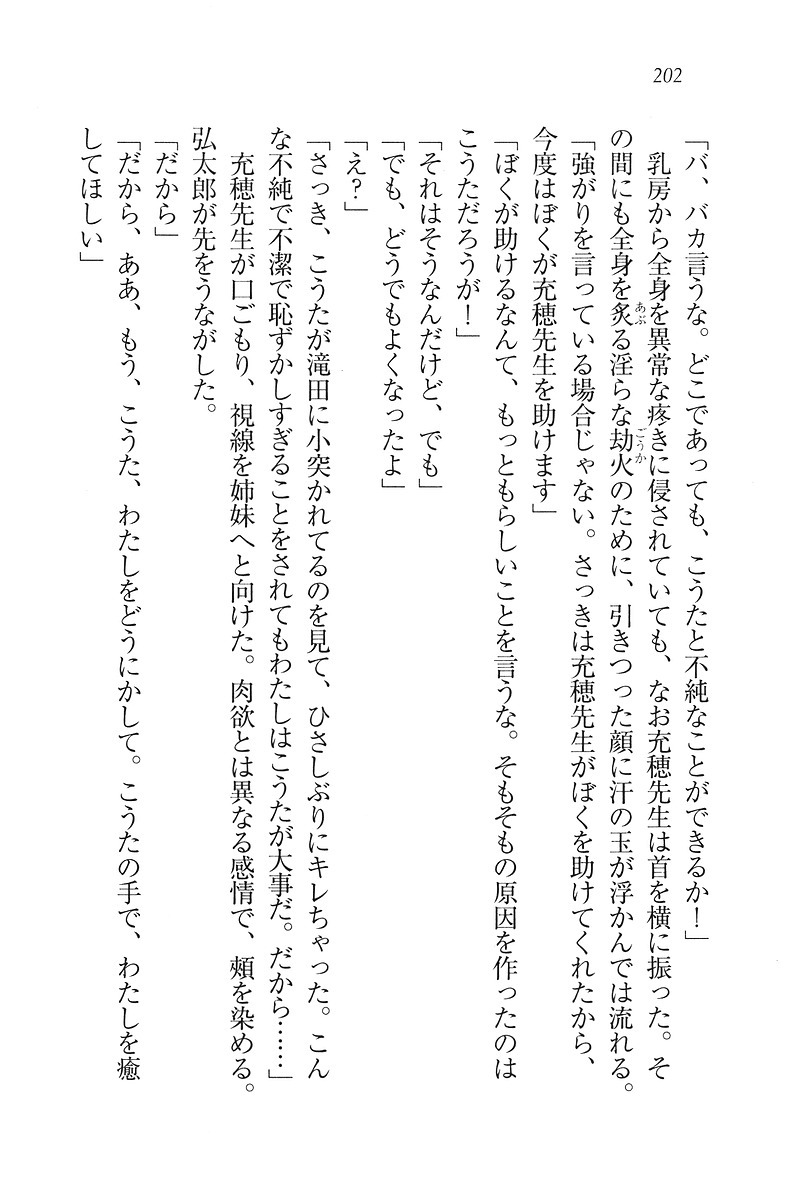 202
「バ、バカ言うな。どこであっても、こうたと不純なことができるか！」
乳房から全身を異常な疼きに侵されていても、なお充穂先生は首を横に振った。そ
の間にも全身を炙る淫らな劫火のために、引きつった顔に汗の玉が浮かんでは流れる。
「強がりを言っている場合じゃない。さっきは充穂先生がぼくを助けてくれたから、
今度はぼくが充穂先生を助けます」
「ぼくが助けるなんて、もっともらしいことを言うな。そもそもの原因を作ったのは
こうただろうが！」
「それはそうなんだけど、でも」
「でも、どうでもよくなったよ」
「え？」
「さっき、こうたが滝田に小突かれてるのを見て、ひさしぶりにキレちゃった。こん
な不純で不潔で恥ずかしすぎることをされてもわたしはこうたが大事だ。だから……」
充穂先生が口ごもり、視線を姉妹へと向けた。肉欲とは異なる感情で、頰を染める。
弘太郎が先をうながした。
「だから」
「だから、ああ、もう、こうた、わたしをどうにかして。こうたの手で、わたしを癒
してほしい」